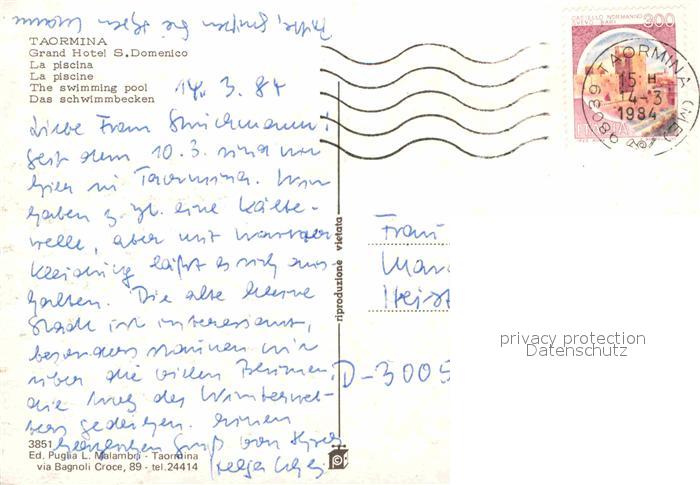 TAORMINA
Grand Hotel S. Domenico
La piscina
La piscine
The swimming pool
Das schwimmbecken
14. 3. 84
Liebe Frau
seit dem 10.3. sind wir
hier in Taormina. Wir
haben z. Zt. eine Kälte-
welle, aber mit warmer
Kleidung läßt es sich aus-
halten. Die alte kleine
Stadt ist interessant,
besonders staunen wir
über die vielen Blumen,
die trotz des Winterwet-
ters gedeihen. Einen
herzlichen Gruß von
3851
Ed. Puglia L. Malambrì - Taormina
via Bagnoli Croce, 89 - tel. 24414
riproduzione vietata
CASTELLO NORMANNO
SVEVO BARI
300
ITALIA
98039 TAORMINA (ME)
15 H
14-3
1984
Frau
D-3005
privacy protection
Datenschutz